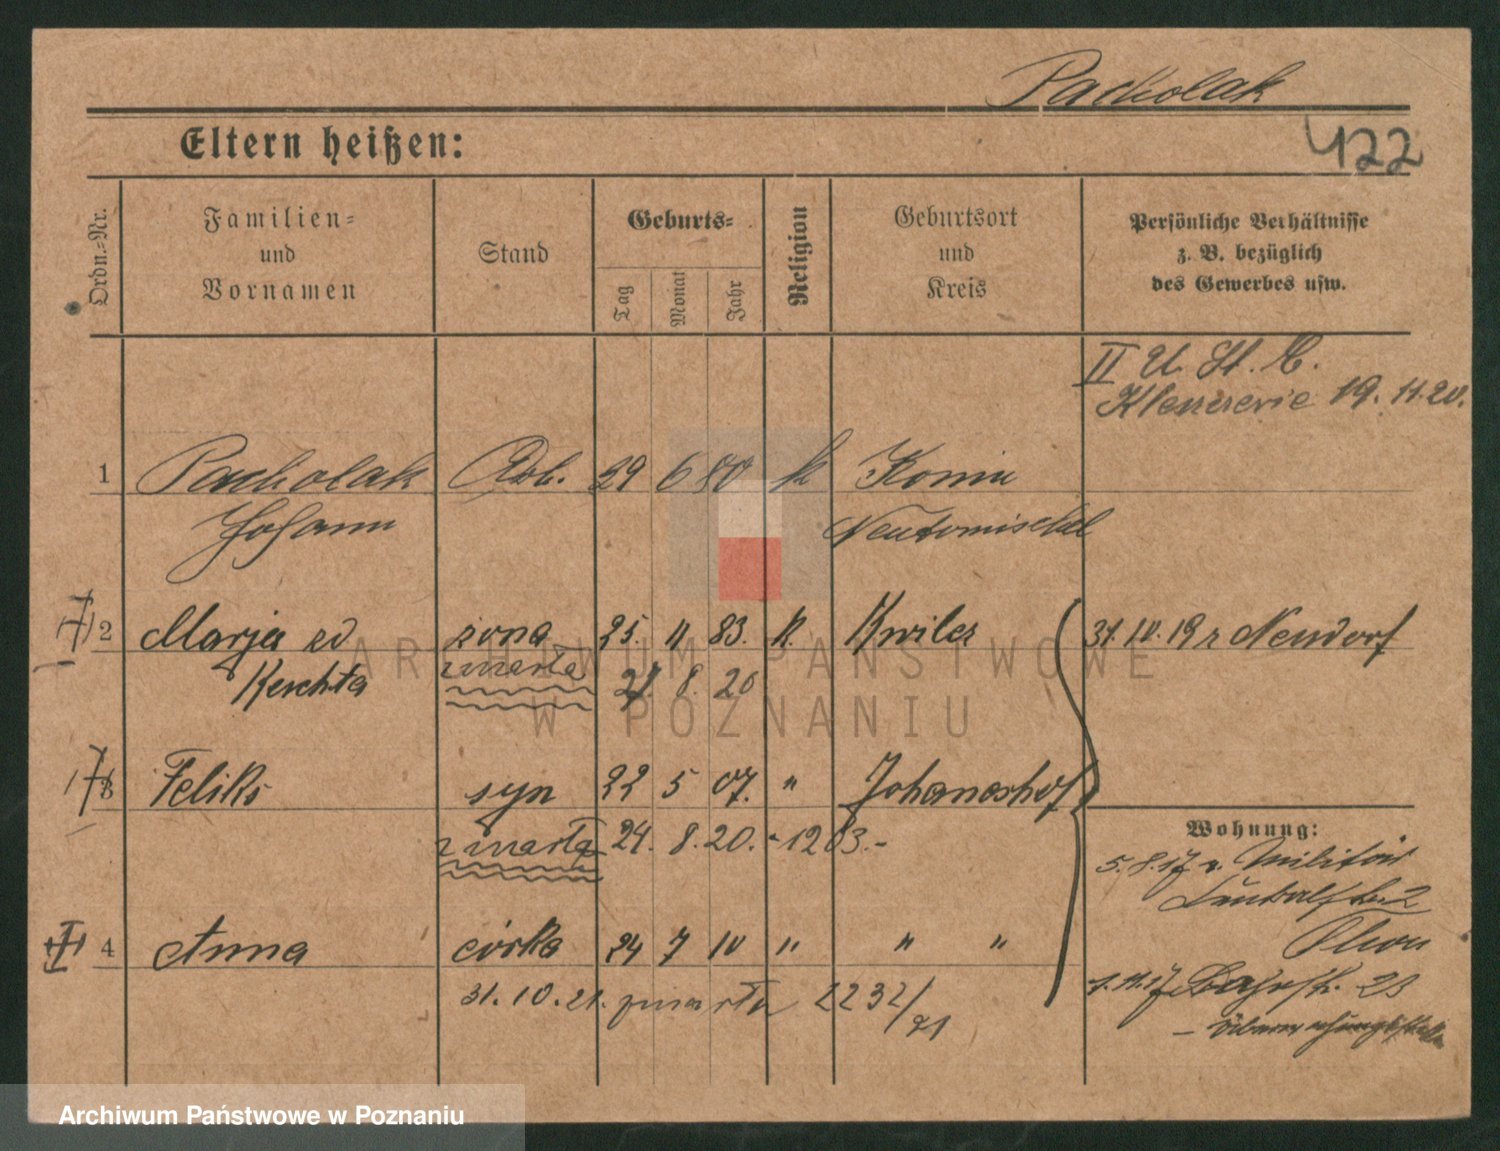 Packolak
422
Eltern heißen:
Ordn.=Nr.
Familien=
und
Vornamen
Stand
Geburts=
Tag
Monat
Jahr
Religion
Geburtsort
und
Kreis
Persönliche Verhältnisse
z. B. bezüglich
des Gewerbes usw.
II U. St. C.
19. 11. 20.
1 Packolak Arb. 29 6 80 k Konin
Johann Neutomischel
2 Marja zd żona 25. 11 83. k. Kwilcz 31. 10. 19 z Neudorf
Kerchta zmarła 21 8. 20
3 Feliks syn 22 5 07. " Johaneshof
zmarł 24. 8. 20. - 1203. -
Wohnung:
5. 8. 17 v. Militär
4 Anna córka 24 7 10 " " "
31. 10. 21. zmarła 2232/21
1. 11. 17 23
ARCHIWUM PAŃSTWOWE
W POZNANIU
Archiwum Państwowe w Poznaniu